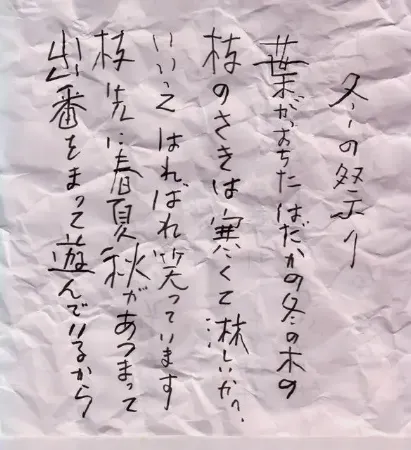 冬の祭り
葉がおちたはだかの冬の木の
枝のさきは寒くて淋しいか？
いいえはればれ笑っています
枝先に春夏秋があつまって
出番をまって遊んでいるから